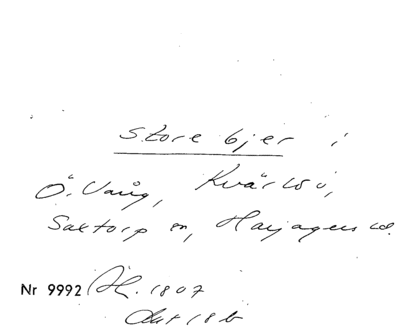 Store bjer i
Ö. Vång, Kvärlöv,
Saxtorp sn, Harjagers hd.
Nr 9992 1807
Akt 18 b